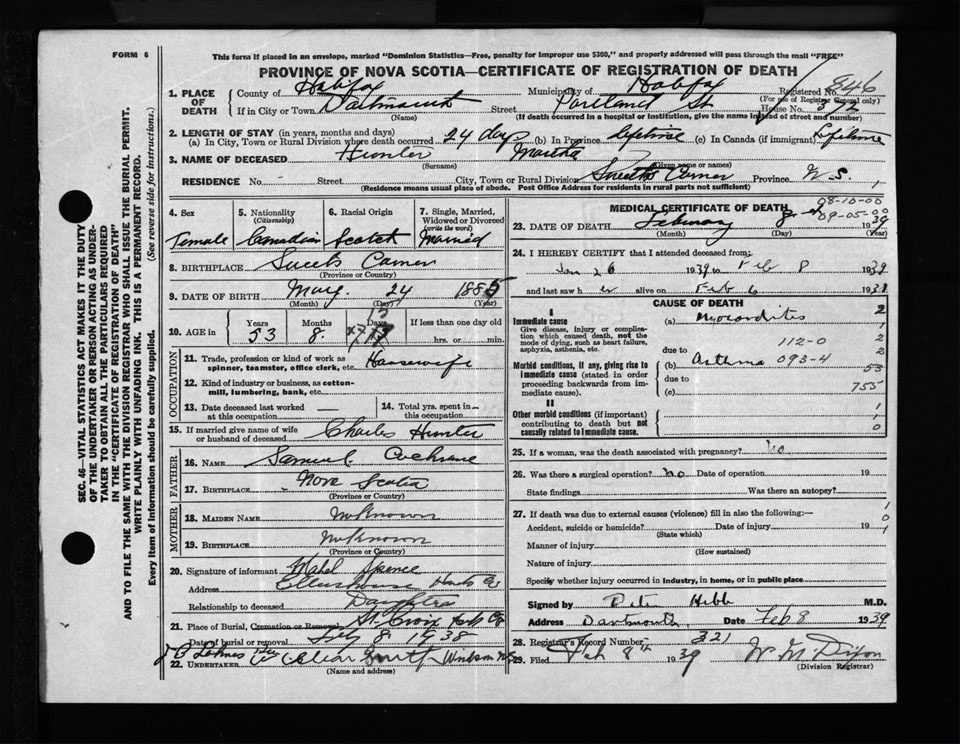 FORM 6
This form if placed in an envelope, marked "Dominion Statistics—Free, penalty for improper use $300," and properly addressed will pass through the mail "FREE"
PROVINCE OF NOVA SCOTIA—CERTIFICATE OF REGISTRATION OF DEATH
SEC. 46—VITAL STATISTICS ACT MAKES IT THE DUTY
OF THE UNDERTAKER OR PERSON ACTING AS UNDER-
TAKER TO OBTAIN ALL THE PARTICULARS REQUIRED
IN THE "CERTIFICATE OF REGISTRATION OF DEATH"
AND TO FILE THE SAME WITH THE DIVISION REGISTRAR WHO SHALL ISSUE THE BURIAL PERMIT.
WRITE PLAINLY WITH UNFADING INK. THIS IS A PERMANENT RECORD.
Every item of information should be carefully supplied. (See reverse side for instructions.)
1. PLACE OF DEATH County of Halifax Municipality of Halifax Registered No. 846
(For use of Registrar General only)
If in City or Town Dartmouth Street Portland St House No.
(Name) (If death occurred in a hospital or institution, give the name instead of street and number)
2. LENGTH OF STAY (in years, months and days)
(a) In City, Town or Rural Division where death occurred 24 days (b) In Province Lifetime (c) In Canada (if immigrant) Lifetime
3. NAME OF DECEASED Hunter Martha
(Surname) (Given name or names)
RESIDENCE No. Street City, Town or Rural Division Sweets Corner Province N.S.
(Residence means usual place of abode. Post Office Address for residents in rural parts not sufficient)
4. Sex 5. Nationality (Citizenship) 6. Racial Origin 7. Single, Married, Widowed or Divorced (write the word)
Female Canadian Scotch Married
8. BIRTHPLACE Sweets Corner
(Province or Country)
9. DATE OF BIRTH May 24 1885
(Month) (Day) (Year)
10. AGE in Years Months Days If less than one day old
53 8 hrs. or min.
OCCUPATION
11. Trade, profession or kind of work as spinner, teamster, office clerk, etc. Housewife
12. Kind of industry or business, as cotton-mill, lumbering, bank, etc.
13. Date deceased last worked at this occupation 14. Total yrs. spent in this occupation
15. If married give name of wife or husband of deceased Charles Hunter
FATHER
16. NAME Samuel Cochrane
17. BIRTHPLACE Nova Scotia
(Province or Country)
MOTHER
18. MAIDEN NAME Unknown
19. BIRTHPLACE Unknown
(Province or Country)
20. Signature of informant Mabel Spence
Address Ellershouse Hants Co
Relationship to deceased Daughter
21. Place of Burial, Cremation or Removal St Croix Hants Co
Date of burial or removal Feby 8 1938
22. UNDERTAKER Smith Windsor N.S.
(Name and address)
MEDICAL CERTIFICATE OF DEATH
08-10-00
09-05-00
23. DATE OF DEATH February 8 1939
(Month) (Day) (Year)
24. I HEREBY CERTIFY that I attended deceased from:
Jan 26 1939 to Feb 8 1939
and last saw her alive on Feb 6 193
CAUSE OF DEATH
I
Immediate cause (a) Myocarditis 2
Give disease, injury or complication which caused death, not the mode of dying, such as heart failure, asphyxia, asthenia, etc.
112-0
due to
Morbid conditions, if any, giving rise to immediate cause (stated in order proceeding backwards from immediate cause). (b) Asthma 093-4
53
due to
(c) 755
II
Other morbid conditions (if important) contributing to death but not causally related to immediate cause.
25. If a woman, was the death associated with pregnancy? No
26. Was there a surgical operation? No Date of operation 19
State findings Was there an autopsy?
27. If death was due to external causes (violence) fill in also the following:—
Accident, suicide or homicide? Date of injury 19
(State which)
Manner of injury
(How sustained)
Nature of injury
Specify whether injury occurred in industry, in home, or in public place
Signed by Peter Hebb M.D.
Address Dartmouth, Feb 8 1939
28. Registrar's Record Number 321
29. Filed Feb 8th 1939 W M Dixon
(Division Registrar)